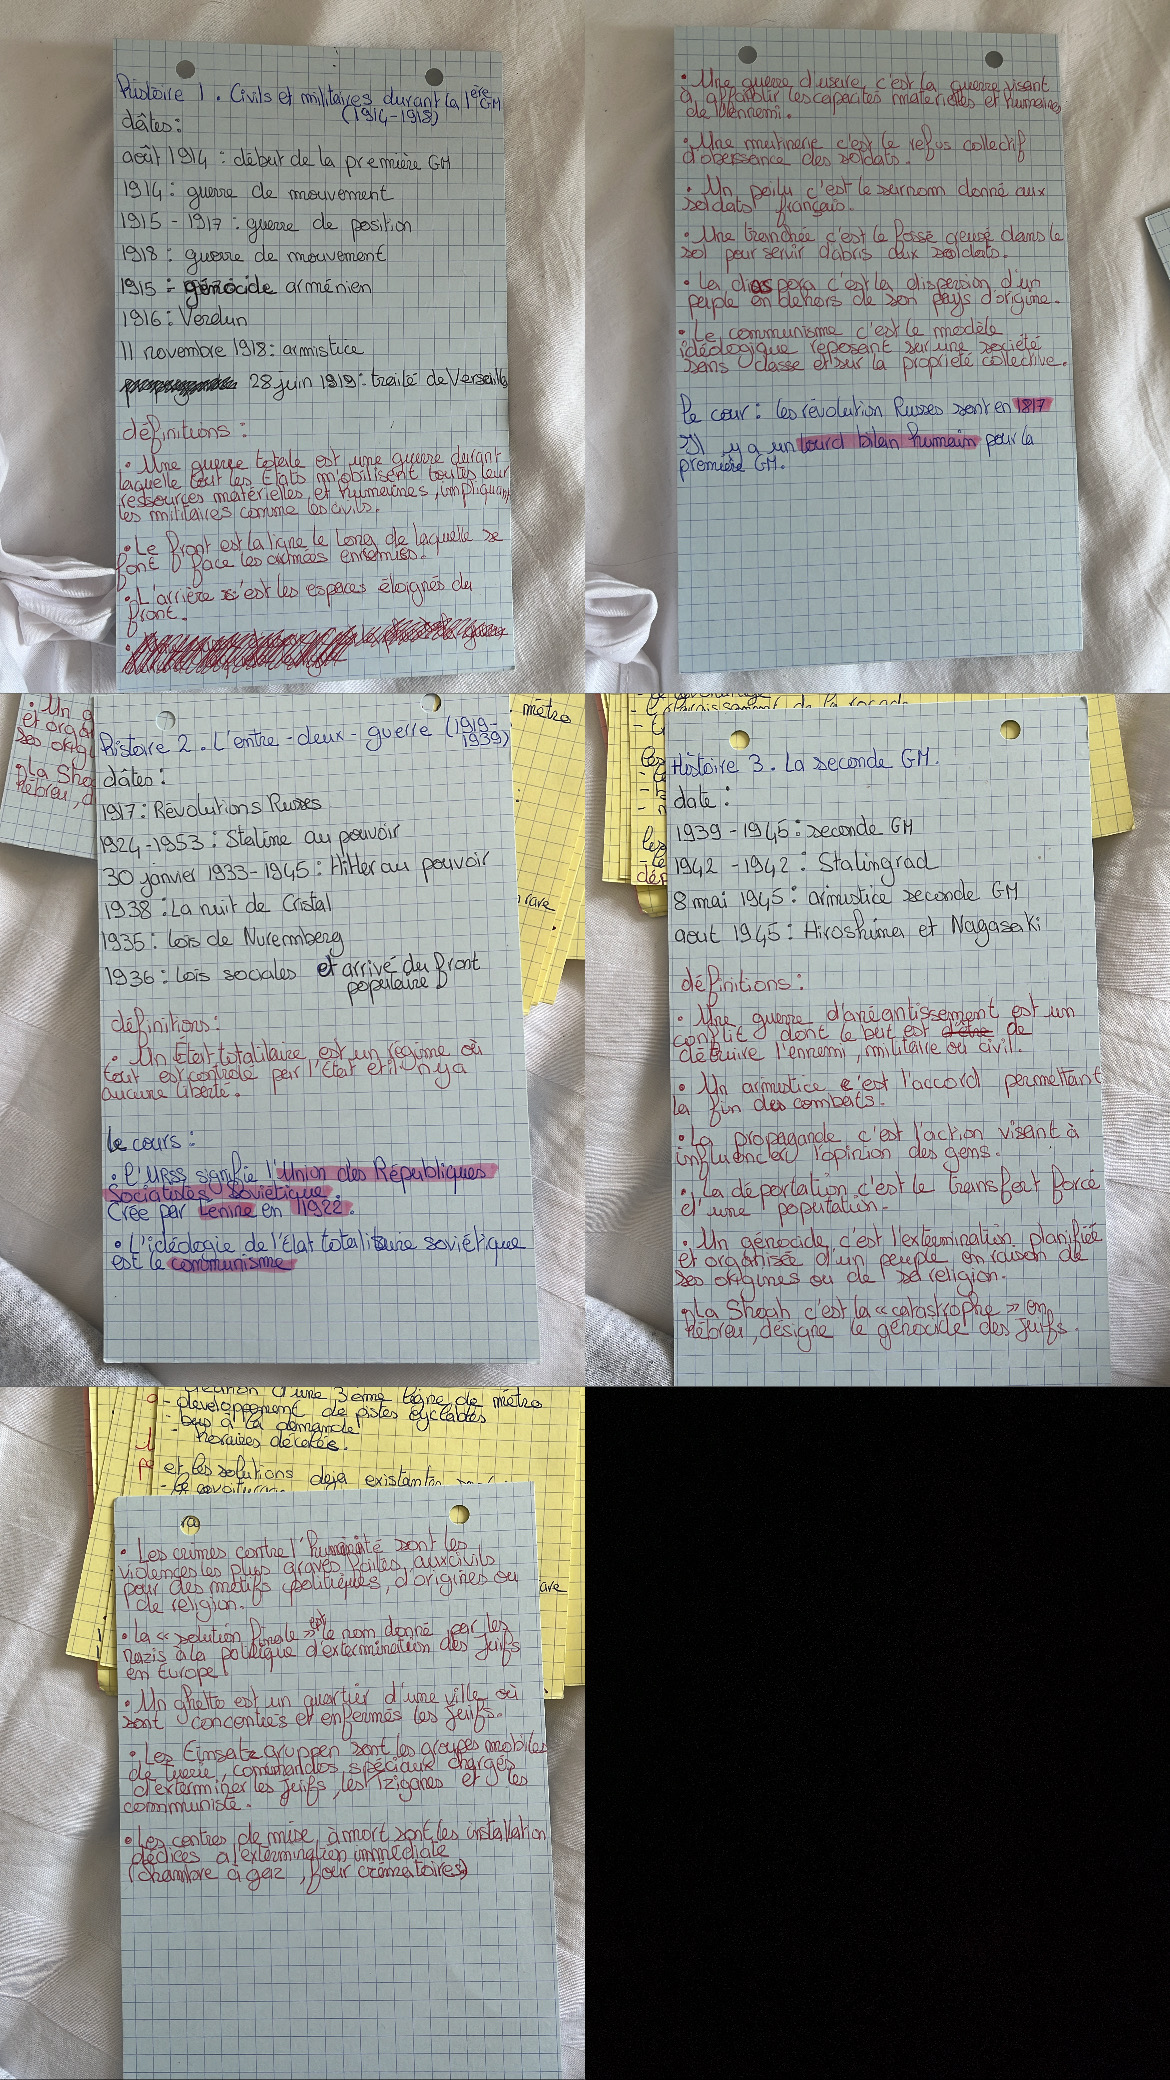 Histoire 1. Civils et militaires durant la 1ère GM
(1914-1918)
dâtes:
août 1914 : début de la première GM
1914 : guerre de mouvement
1915 - 1917 : guerre de position
1918 : guerre de mouvement
1915 : génocide arménien
1916 : Verdun
11 novembre 1918 : armistice
28 juin 1919 : traité de Versaille
définitions :
• Une guerre totale est une guerre durant
laquelle tout les États mobilisent toutes leur
ressources matérielles et humaines, impliquant
les militaires comme les civils.
• Le front est la ligne le long de laquelle se
font face les armées ennemies.
• L'arrière c'est les espaces éloignés du
front.
guerre
• Une guerre d'usure c'est la guerre visant
à affaiblir les capacités matérielles et humaines
de l'ennemi.
• Une mutinerie c'est le refus collectif
d'obeissance des soldats.
• Un poilu c'est le surnom donné aux
soldats français.
• Une tranchée c'est le fossé creusé dans le
sol pour servir d'abris aux soldats.
• La diaspora c'est la dispersion d'un
peuple en dehors de son pays d'origine.
• Le communisme c'est le modèle
idéologique reposant sur une société
sans classe et sur la propriété collective.
le cour : les révolution Russes sont en 1817
Il y a un lourd bilan humain pour la
première GM.
• Un g
et orga
ses orig
• La Shoa
Hébreu, d
métro
rave
Histoire 2. L'entre-deux-guerre (1919-
1939)
dâtes :
1917 : Révolutions Russes
1924-1953 : Staline au pouvoir
30 janvier 1933-1945 : Hitler au pouvoir
1938 : La nuit de Cristal
1935 : Lois de Nuremberg
1936 : Lois sociales et arrivé du front
populaire
définitions :
• Un État totalitaire est un régime où
tout est controlé par l'État et il n'y a
aucune liberté.
le cours :
• L'URSS signifie l'Union des Républiques
Socialistes Soviétique.
Crée par Lenine en 1922.
• L'idéologie de l'État totalitaire soviétique
est le communisme
Histoire 3. La seconde GM.
date :
1939 - 1945 : seconde GM
1942 - 1942 : Stalingrad
8 mai 1945 : armistice seconde GM
aout 1945 : Hiroshima et Nagasaki
définitions :
• Une guerre d'anéantissement est un
conflit dont le but est d'être de
détruire l'ennemi, militaire ou civil.
• Un armistice c'est l'accord permettant
la fin des combats.
• La propagande c'est l'action visant à
influencer l'opinion des gens.
• La déportation c'est le transfert forcé
d'une population.
• Un génocide c'est l'extermination planifiée
et organisée d'un peuple en raison de
ses origines ou de sa religion.
• La Shoah c'est la « catastrophe » en
Hébreu, désigne le génocide des juifs.
d'une 3eme ligne de métro
- développement de pistes cyclables
- bus à la demande
- horaires décalés.
et les solutions deja existantes
- le covoiturage
• Les crimes contre l'humanité sont les
violences les plus graves faites aux civils
pour des motifs politiques, d'origines ou
de religion.
• la « solution finale » est le nom donné par les
nazis à la politique d'extermination des juifs
en Europe
• Un ghetto est un quartier d'une ville où
sont concentrés et enfermés les juifs.
• Les Einsatzgruppen sont les groupes mobiles
de tuerie, commandos spéciaux chargés
d'exterminer les juifs, les Tziganes et les
communiste.
• Les centres de mise à mort sont les installation
dédiées à l'extermination immédiate
(chambre à gaz, four crématoires)